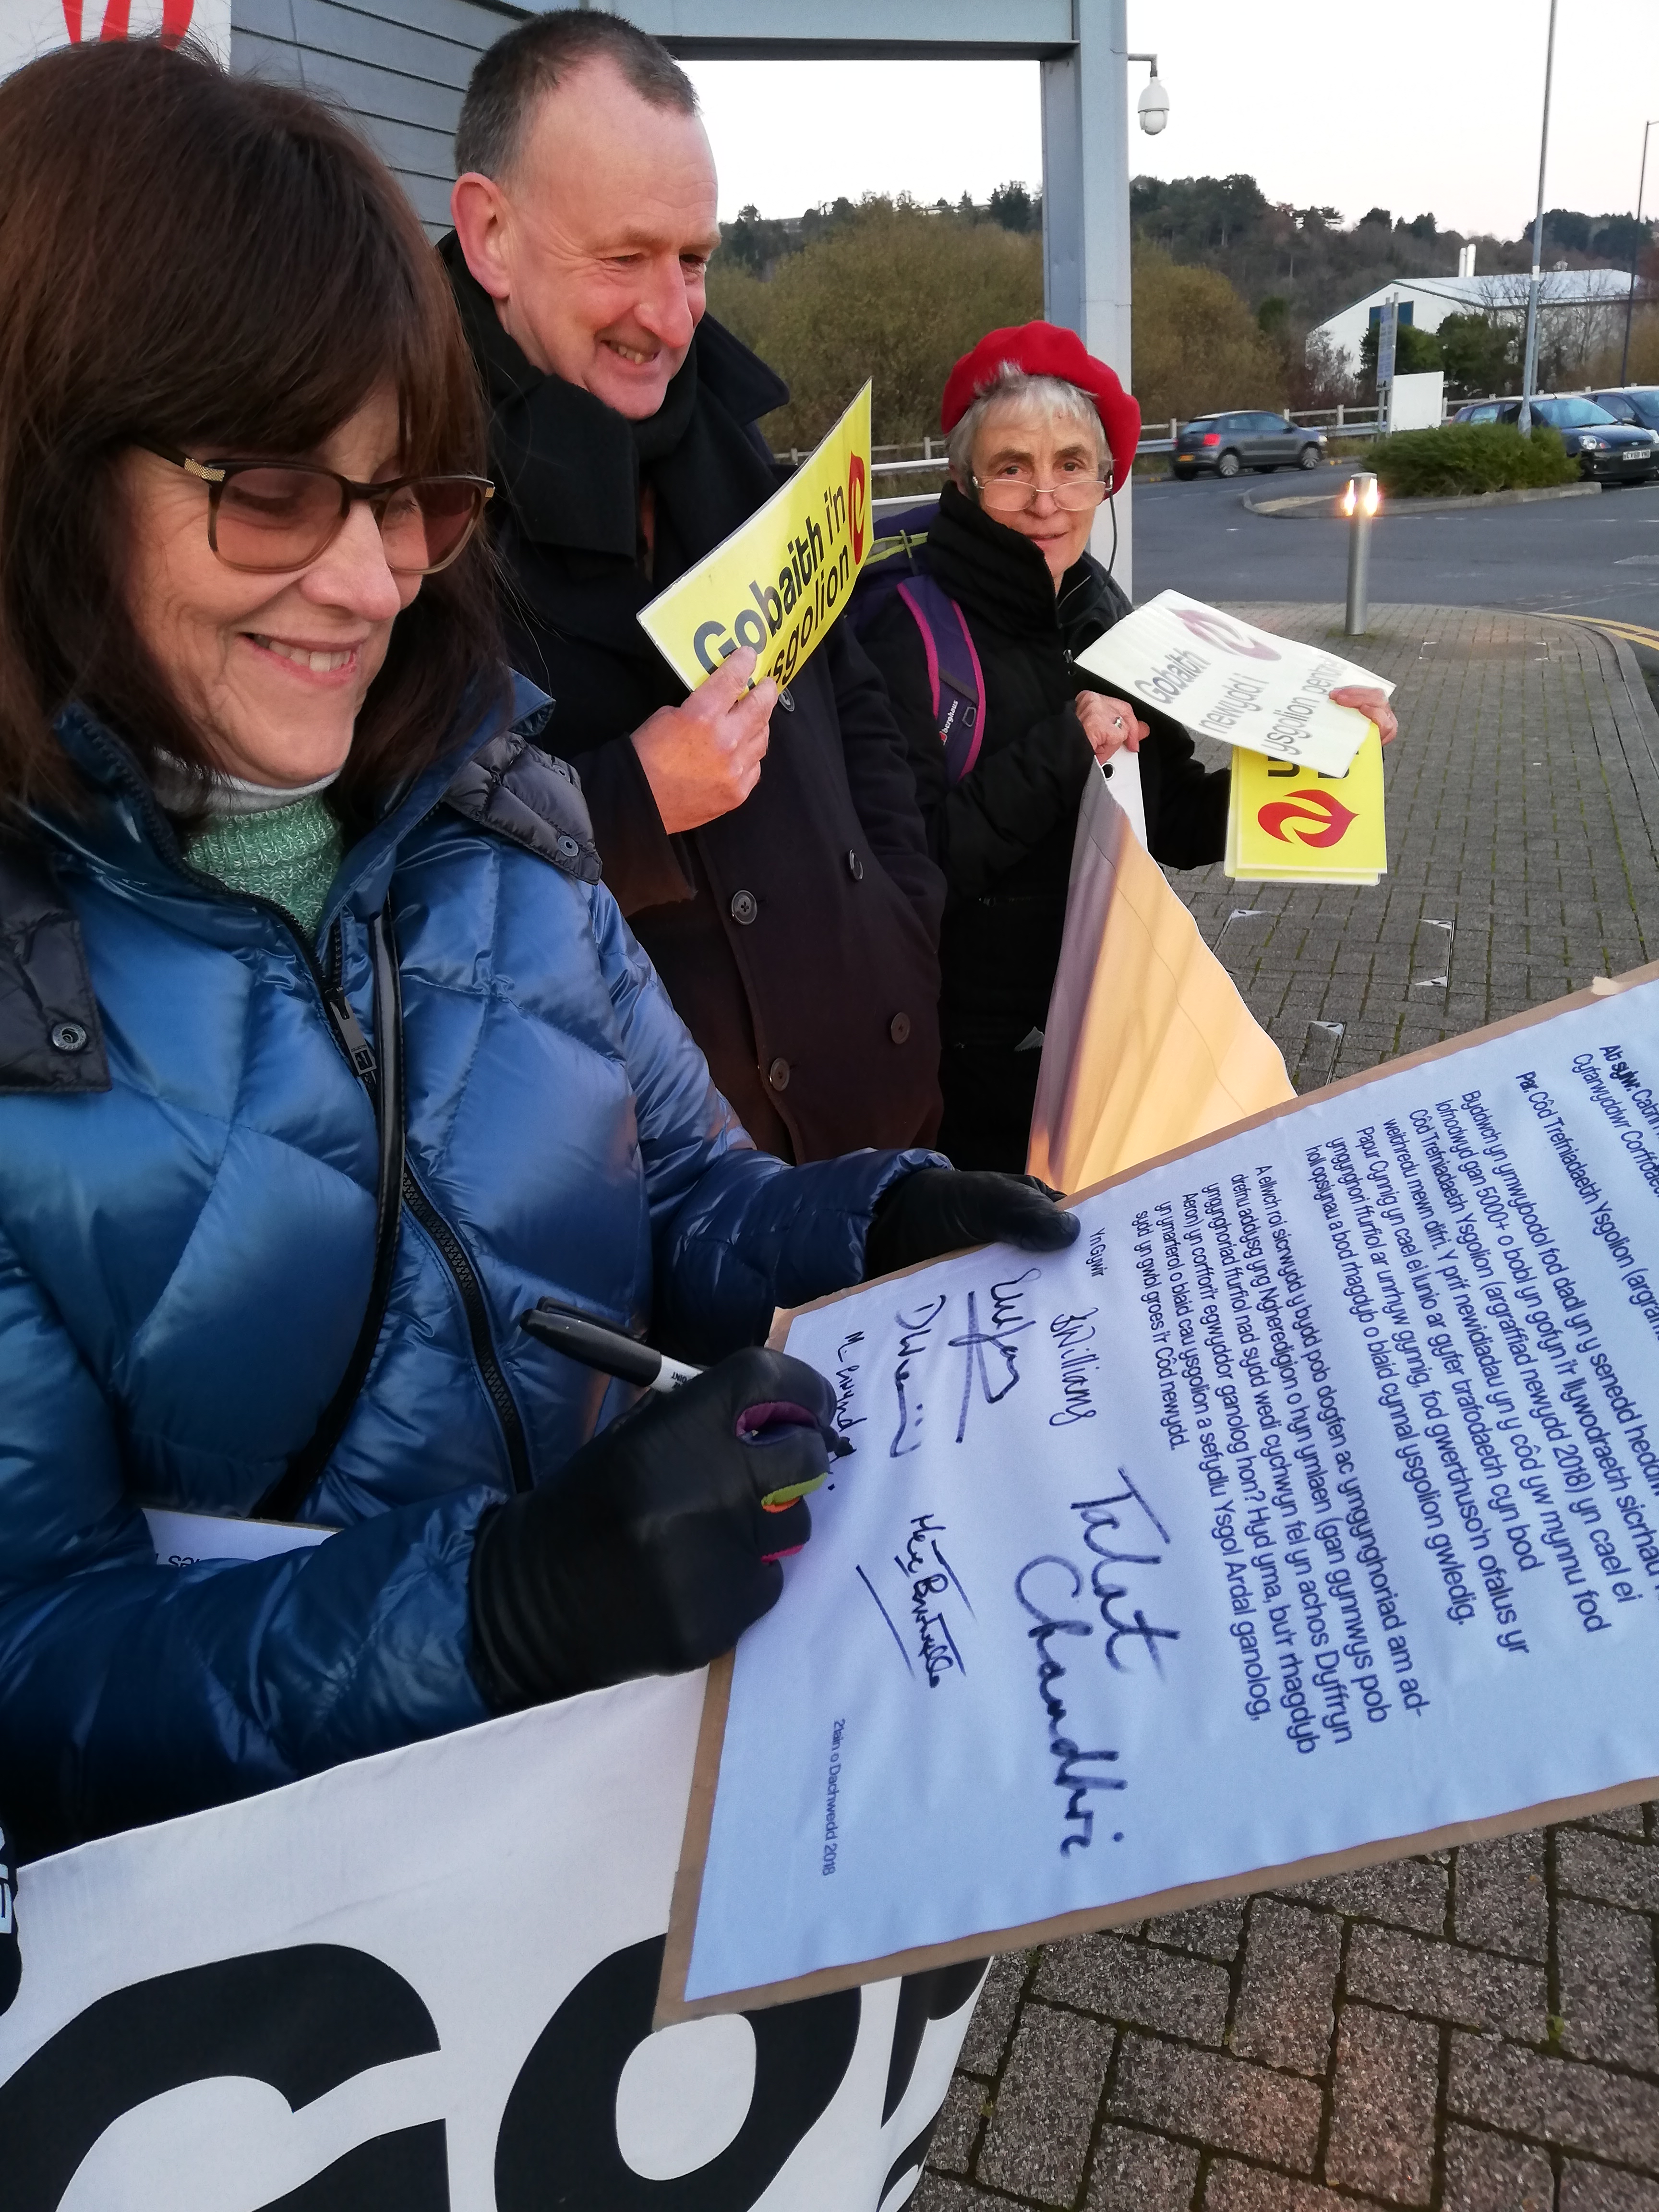 Gobaith i'n
ysgolion
Gobaith
newydd i
ysgolion pentre
berghaus
At sylw: Catrin
Cyfarwyddwr Corfforaethol
Par: Côd Trefniadaeth Ysgolion (argraffiad
Byddwch yn ymwybodol fod dadl yn y senedd heddiw
lofnodwyd gan 5000+ o bobl yn gofyn i'r Llywodraeth sicrhau
Côd Trefniadaeth Ysgolion (argraffiad newydd 2018) yn cael ei
weithredu mewn difri. Y prif newidiadau yn y côd yw mynnu fod
Papur Cynnig yn cael ei lunio ar gyfer trafodaeth cyn bod
ymgynghori ffurfiol ar unrhyw gynnig, fod gwerthuso'n ofalus yr
holl opsiynau a bod rhagdyb o blaid cynnal ysgolion gwledig.
A ellwch roi sicrwydd y bydd pob dogfen ac ymgynghoriad am ad-
drefnu addysg yng Ngheredigion o hyn ymlaen (gan gynnwys pob
ymgynghoriad ffurfiol nad sydd wedi cychwyn fel yn achos Dyffryn
Aeron) yn corffori'r egwyddor ganolog hon? Hyd yma, bu'r rhagdyb
yn ymarferol o blaid cau ysgolion a sefydlu Ysgol Ardal ganolog,
sydd yn gwbl groes i'r Côd newydd.
Yn Gywir
Williams
Talat
Chaudhri
21ain o Dachwedd 2018